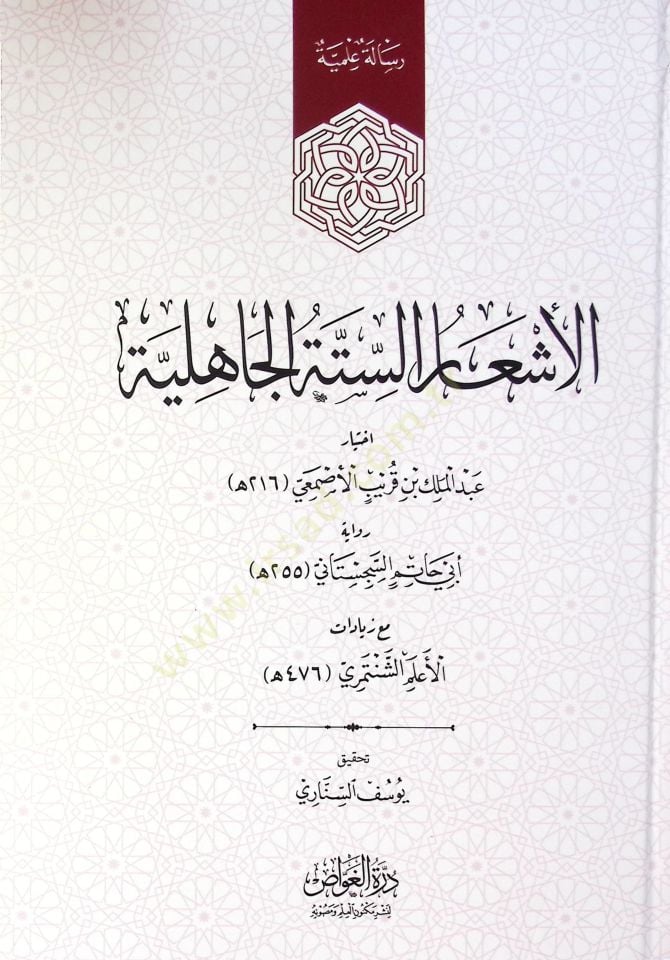 رِسَالَةٌ عِلمِيَّةٌ
الأشعَار السِّتَّة الجَاهِليَّة
اختيار
عَبْدِ المَلِك بْنِ قُرَيْبٍ الأَصْمَعِيّ (٢١٦هـ)
رواية
أبي حَاتِمٍ السِّجِسْتَانيّ (٢٥٥هـ)
مع زيادات
الأَعْلَمِ الشَّنْتَمَرِيّ (٤٧٦هـ)
تحقيق
يُوسُف السِّنَّاري
دُرَّةُ الغَوَّاصِ
لِنَشْرِ مَكْنُونِ العِلْمِ وَمَصُونِهِ